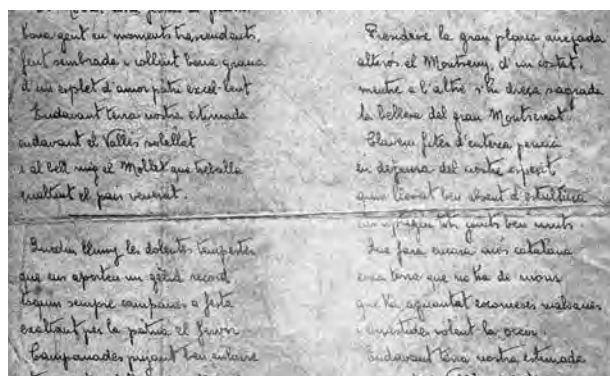 bona gent en moments trascendents,
fent sembrada i collint bona grana
d'un esplet d'amor patri excel·lent
Endavant terra nostra estimada
endavant el Vallès solellat
i al bell mig el Mollet que treballa
enaltint el país venerat.
Quedin lluny les dolentes tempestes
que ens aporten un gèlid record
toquin sempre campanes a festa
exaltant per la patria el fervor
Campanades pujant ben enlaire
Presideix la gran plana
alterós el Montseny, d'un costat,
mentre a l'altre s'hi dreça sagrada
la bellesa del gran Montserrat
Clavem fites d'entera
en defensa del nostre esperit
tots junts ben units.
Que farà encara més catalana
eixa terra que no ha de morir
que ha aguantat escomeses malvades
i envestides volent-la
Endavant terra nostra estimada